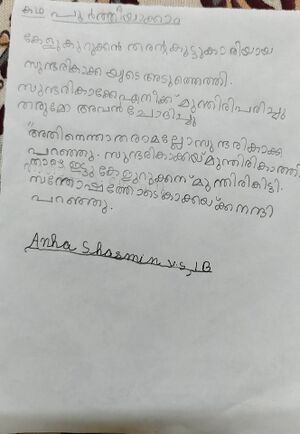 കഥ പൂർത്തിയാക്കാം
കേളുകുറുക്കൻ തന്റെ കൂട്ടുകാരിയായ
സുന്ദരികാക്കയുടെ അടുത്തെത്തി.
സുന്ദരികാക്കേ എനിക്ക് മുന്തിരി പരിച്ചു
തരുമോ അവൻ ചോദിച്ചു
"അതിനെന്താ തരാമല്ലോ സുന്ദരികാക്ക
പറഞ്ഞു. സുന്ദരികാക്കയ് മുന്തിരികൊത്തി
താഴെ ഇട്ടു കേളുകുറുക്കന് മുന്തിരികിട്ടി.
സന്തോഷത്തോടെ കാക്കയ്ക്ക് നന്ദി
പറഞ്ഞു.
Anha Shasmin v.s, 1 B